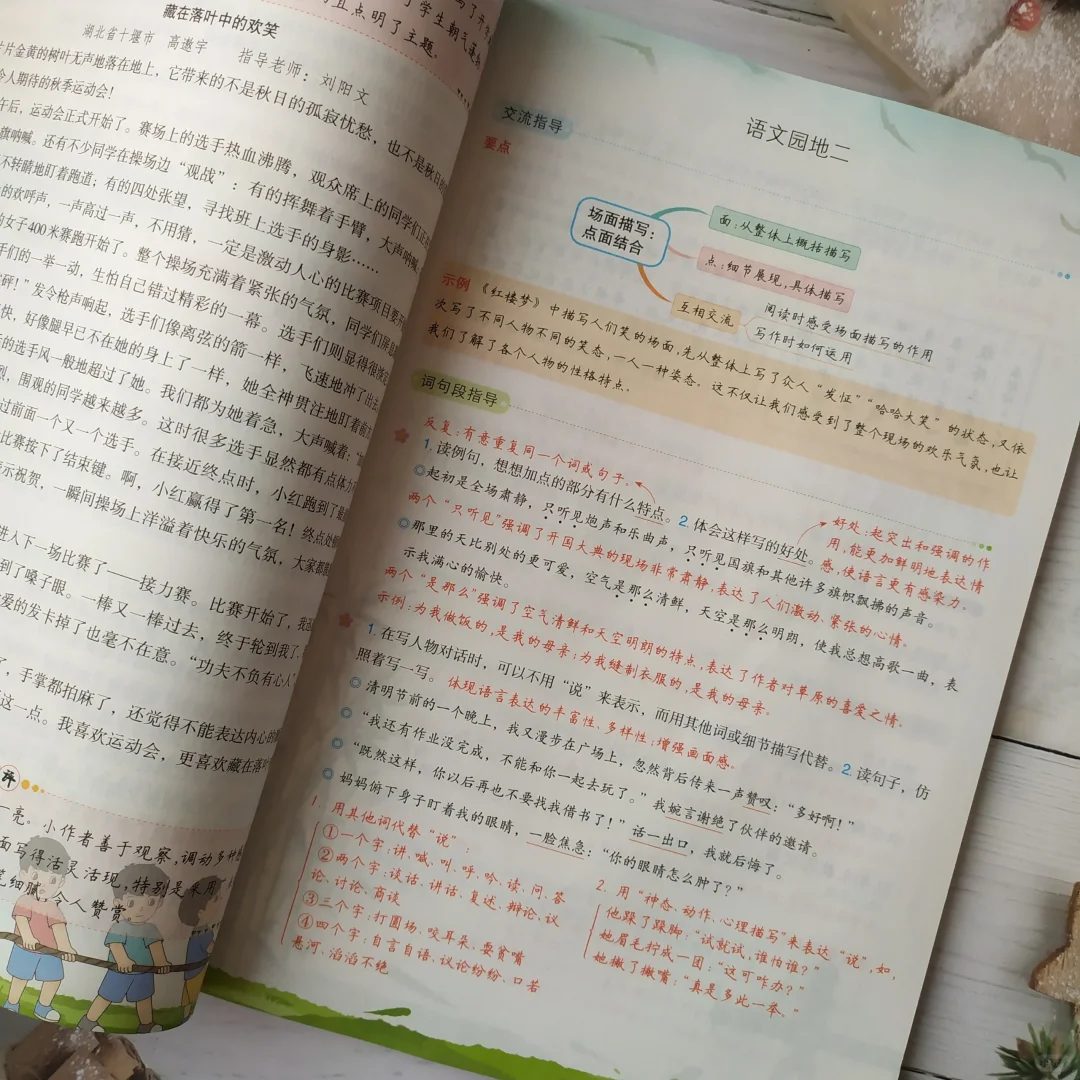 了学生朝气蓬勃
且点明了主题。
藏在落叶中的欢笑
湖北省十堰市 高遨宇 指导老师：刘阳文
片片金黄的树叶无声地落在地上，它带来的不是秋日的孤寂忧愁，也不是秋日的
令人期待的秋季运动会！
午后，运动会正式开始了。赛场上的选手热血沸腾，观众席上的同学们正在
旗呐喊。还有不少同学在操场边“观战”：有的挥舞着手臂，大声呐喊
不转睛地盯着跑道；有的四处张望，寻找班上选手的身影……
的欢呼声，一声高过一声，不用猜，一定是激动人心的比赛项目要开
女子400米赛跑开始了。整个操场充满着紧张的气氛，同学们屏息
手们的一举一动，生怕自己错过精彩的一幕。选手们则显得很淡定
砰！”发令枪声响起，选手们像离弦的箭一样，飞速地冲了出去
快，好像腿早已不在她的身上了一样，她全神贯注地盯着前方
的选手风一般地超过了她。我们都为她着急，大声喊着：
烈，围观的同学越来越多。这时很多选手显然都有点体力
过前面一个又一个选手。在接近终点时，小红跑到了最
比赛按下了结束键。啊，小红赢得了第一名！终点处
示祝贺，一瞬间操场上洋溢着快乐的气氛，大家都
进入下一场比赛了——接力赛。比赛开始了，我
到了嗓子眼。一棒又一棒过去，终于轮到我了
爱的发卡掉了也毫不在意。“功夫不负有心人”
了，手掌都拍麻了，还觉得不能表达内心的
这一点。我喜欢运动会，更喜欢藏在落叶
一亮。小作者善于观察，调动多种
面写得活灵活现，特别是采用
笔细腻，令人赞赏
语文园地二
交流指导
要点
场面描写：
点面结合
面：从整体上概括描写
点：细节展现，具体描写
互相交流
阅读时感受场面描写的作用
写作时如何运用
示例 《红楼梦》中描写人们笑的场面，先从整体上写了众人“发怔”“哈哈大笑”的状态，又依
次写了不同人物不同的笑态，一人一种姿态。这不仅让我们感受到了整个现场的欢乐气氛，也让
我们了解了各个人物的性格特点。
词句段指导
反复：有意重复同一个词或句子。
1. 读例句，想想加点的部分有什么特点。2. 体会这样写的好处。
好处：起突出和强调的作
用，能更加鲜明地表达情
感，使语言更有感染力。
◎起初是全场肃静，只听见炮声和乐曲声，只听见国旗和其他许多旗帜飘拂的声音。
两个“只听见”强调了开国大典的现场非常肃静，表达了人们激动、紧张的心情。
◎那里的天比别处的更可爱，空气是那么清鲜，天空是那么明朗，使我总想高歌一曲，表
示我满心的愉快。
两个“是那么”强调了空气清鲜和天空明朗的特点，表达了作者对草原的喜爱之情。
示例：为我做饭的，是我的母亲；为我缝制衣服的，是我的母亲。
1. 在写人物对话时，可以不用“说”来表示，而用其他词或细节描写代替。2. 读句子，仿
照着写一写。 体现语言表达的丰富性、多样性；增强画面感。
◎清明节前的一个晚上，我又漫步在广场上，忽然背后传来一声赞叹：“多好啊！”
◎“我还有作业没完成，不能和你一起去玩了。”我婉言谢绝了伙伴的邀请。
◎“既然这样，你以后再也不要找我借书了！”话一出口，我就后悔了。
◎妈妈俯下身子盯着我的眼睛，一脸焦急：“你的眼睛怎么肿了？”
1. 用其他词代替“说”：
①一个字：讲、喊、叫、呼、吟、读、问、答
②两个字：谈话、讲话、复述、辩论、议
论、讨论、商谈
③三个字：打圆场、咬耳朵、耍贫嘴
④四个字：自言自语、议论纷纷、口若
悬河、滔滔不绝
2. 用“神态、动作、心理描写”来表达“说”，如，
他跺了跺脚：“试就试，谁怕谁？”
她眉毛拧成一团：“这可咋办？”
她撇了撇嘴：“真是多此一举。”